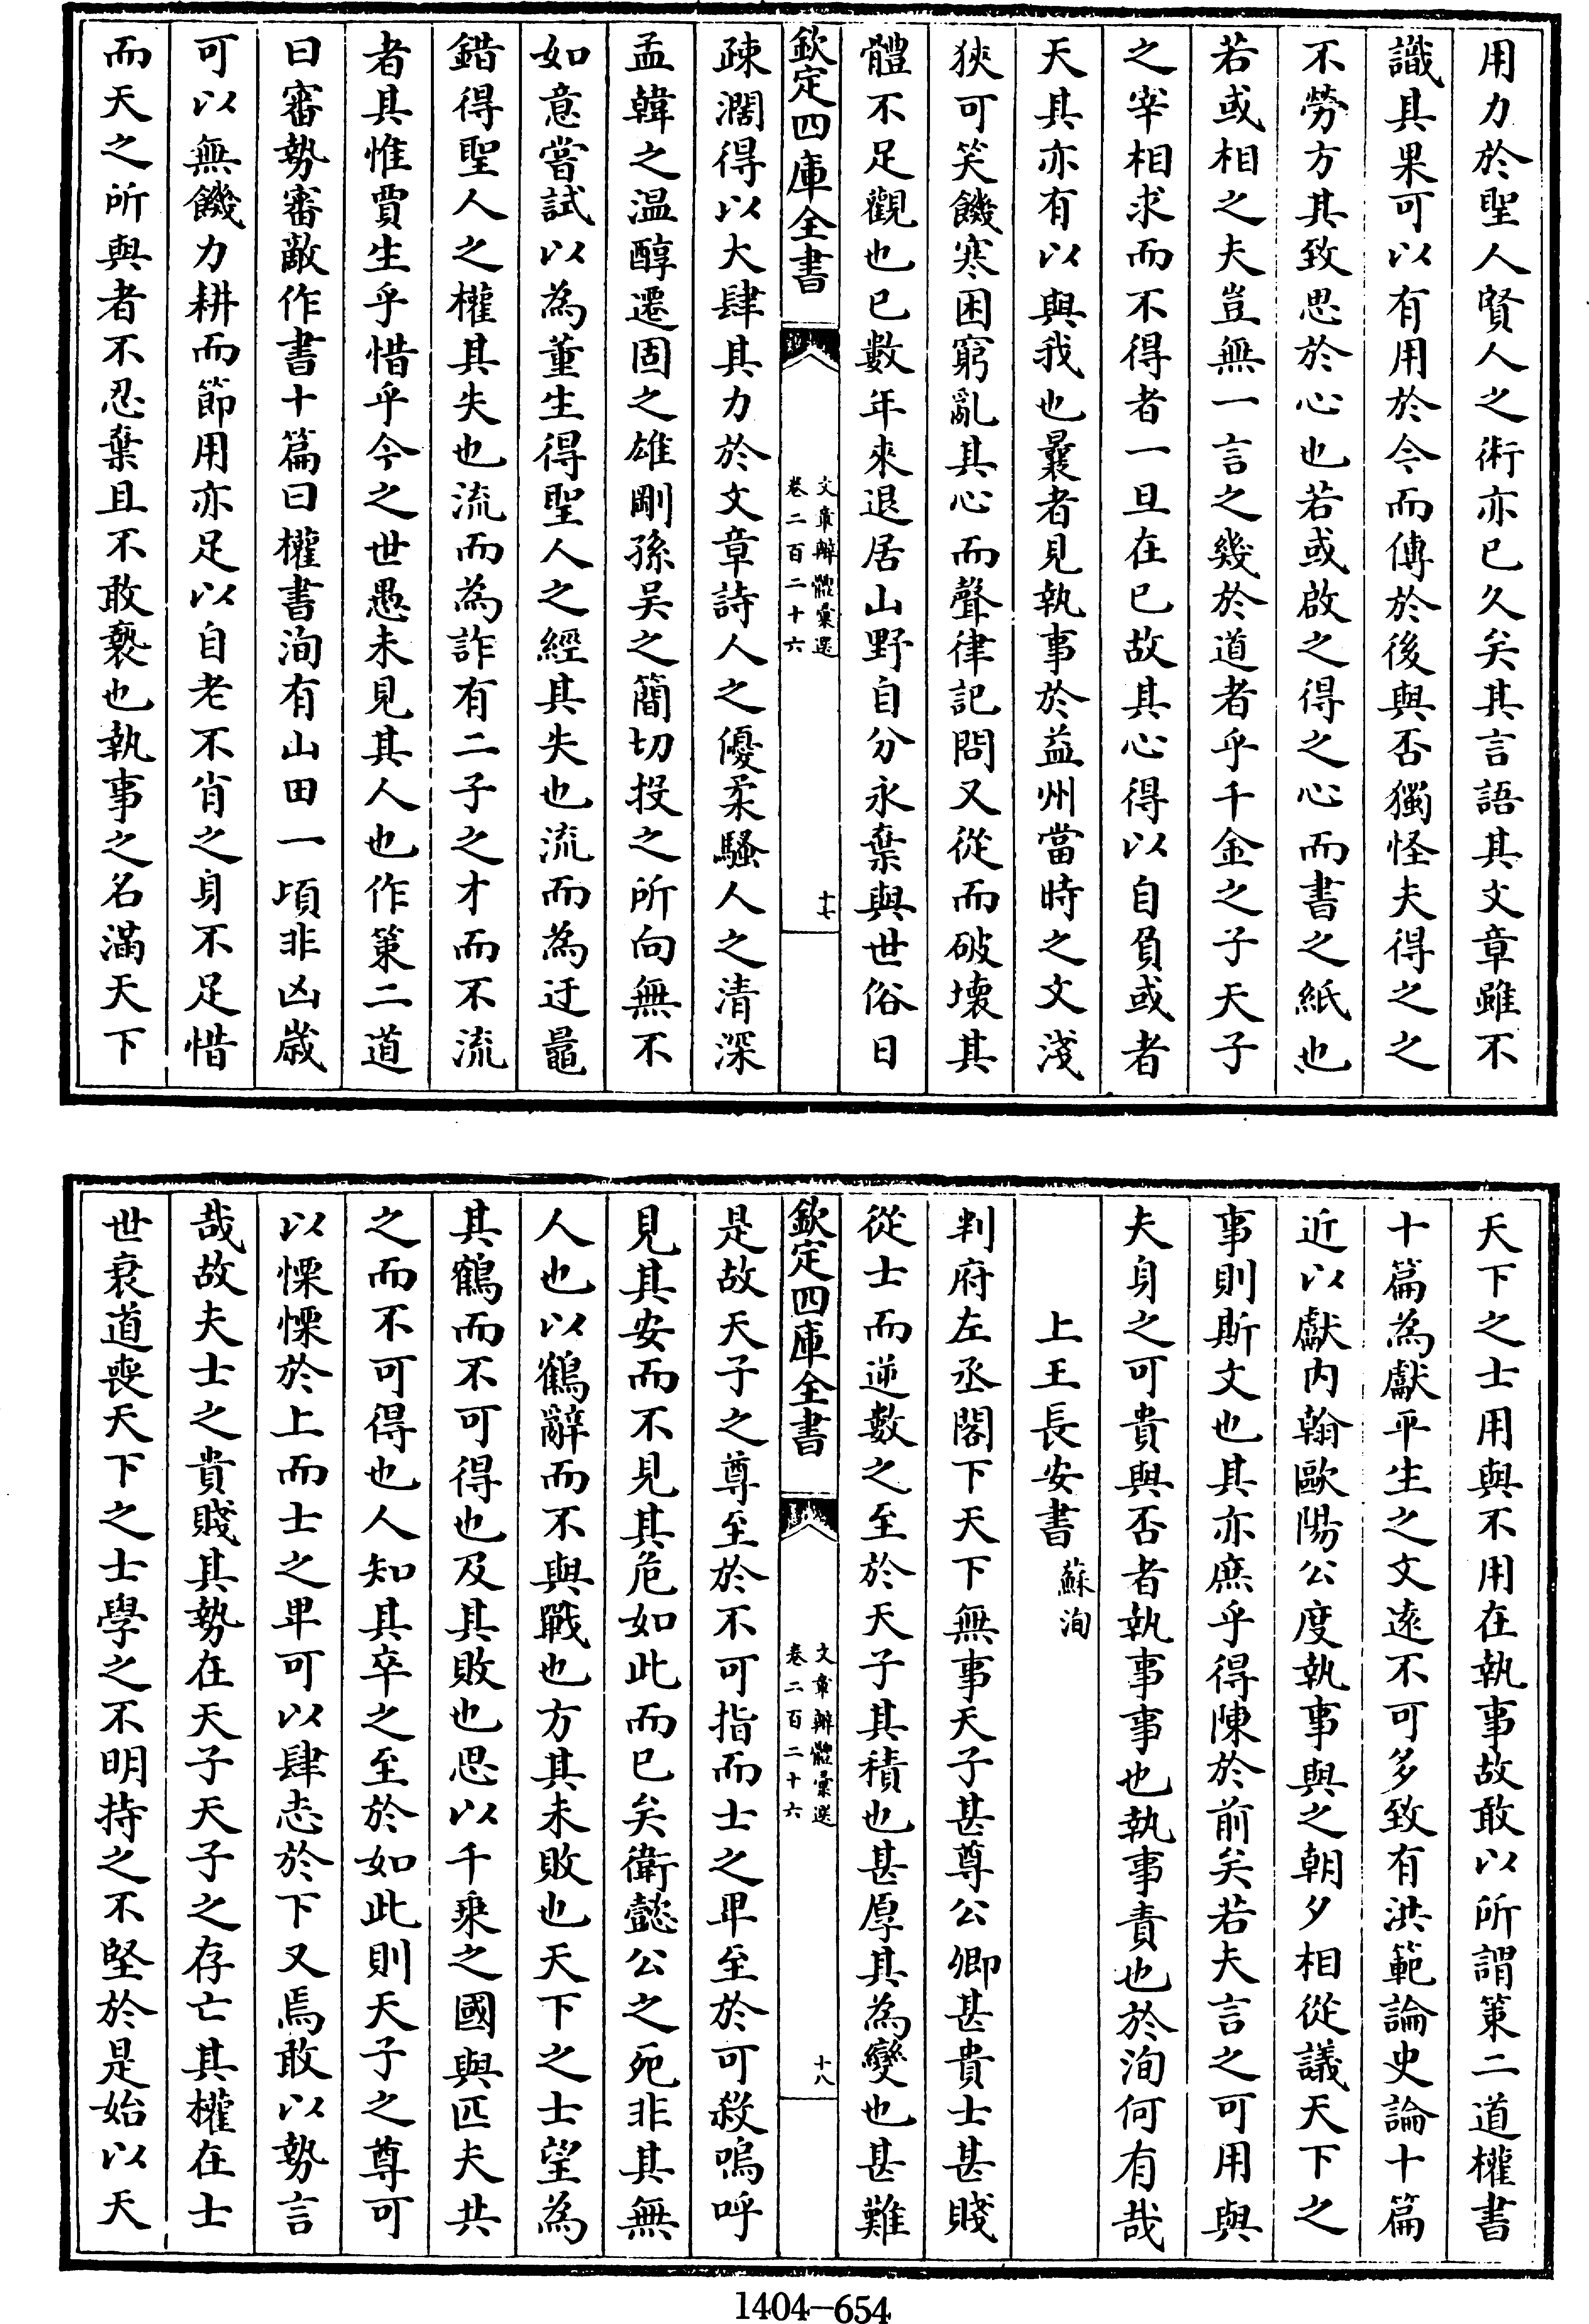 用力於聖人賢人之術亦已久矣其言語其文章雖不
識其果可以有用於今而傳於後與否獨怪夫得之之
不勞方其致思於心也若或啟之得之心而書之紙也
若或相之夫豈無一言之幾於道者乎千金之子天子
之宰相求而不得者一旦在已故其心得以自負或者
天其亦有以與我也曩者見執事於益州當時之文淺
狹可笑饑寒困窮亂其心而聲律記問又從而破壞其
體不足觀也已數年來退居山野自分永棄與世俗日
欽定四庫全書
文章辨體彙選
卷二百二十六
十七
疎濶得以大肆其力於文章詩人之優柔騷人之清深
孟韓之温醇遷固之雄剛孫吴之簡切投之所向無不
如意嘗試以為董生得聖人之經其失也流而為迂鼂
錯得聖人之權其失也流而為詐有二子之才而不流
者其惟賈生乎惜乎今之世愚未見其人也作策二道
曰審勢審敵作書十篇曰權書洵有山田一頃非凶歲
可以無饑力耕而節用亦足以自老不肖之身不足惜
而天之所與者不忍棄且不敢褻也執事之名滿天下
天下之士用與不用在執事故敢以所謂策二道權書
十篇為獻平生之文遠不可多致有洪範論史論十篇
近以獻内翰歐陽公度執事與之朝夕相從議天下之
事則斯文也其亦庶乎得陳於前矣若夫言之可用與
夫身之可貴與否者執事事也執事責也於洵何有哉
上王長安書 蘇洵
判府左丞閣下天下無事天子甚尊公卿甚貴士甚賤
從士而逆數之至於天子其積也甚厚其為變也甚難
欽定四庫全書
文章辨體彙選
卷二百二十六
十八
是故天子之尊至於不可指而士之卑至於可殺嗚呼
見其安而不見其危如此而已矣衛懿公之死非其無
人也以鶴辭而不與戰也方其未敗也天下之士望為
其鶴而不可得也及其敗也思以千乘之國與匹夫共
之而不可得也人知其卒之至於如此則天子之尊可
以慄慄於上而士之卑可以肆志於下又焉敢以勢言
哉故夫士之貴賤其勢在天子天子之存亡其權在士
世衰道喪天下之士學之不明持之不堅於是始以天
1404-654